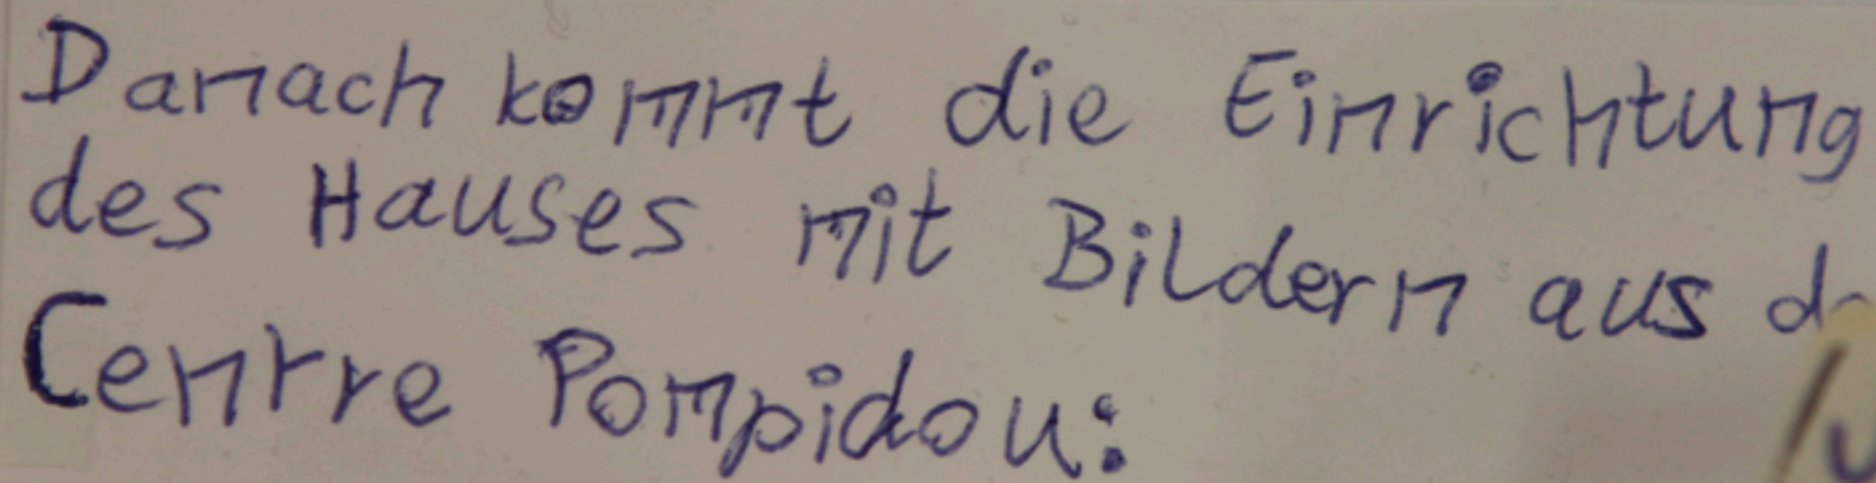 Danach kommt die Einrichtung
des Hauses mit Bildern aus
Centre Pompidou: